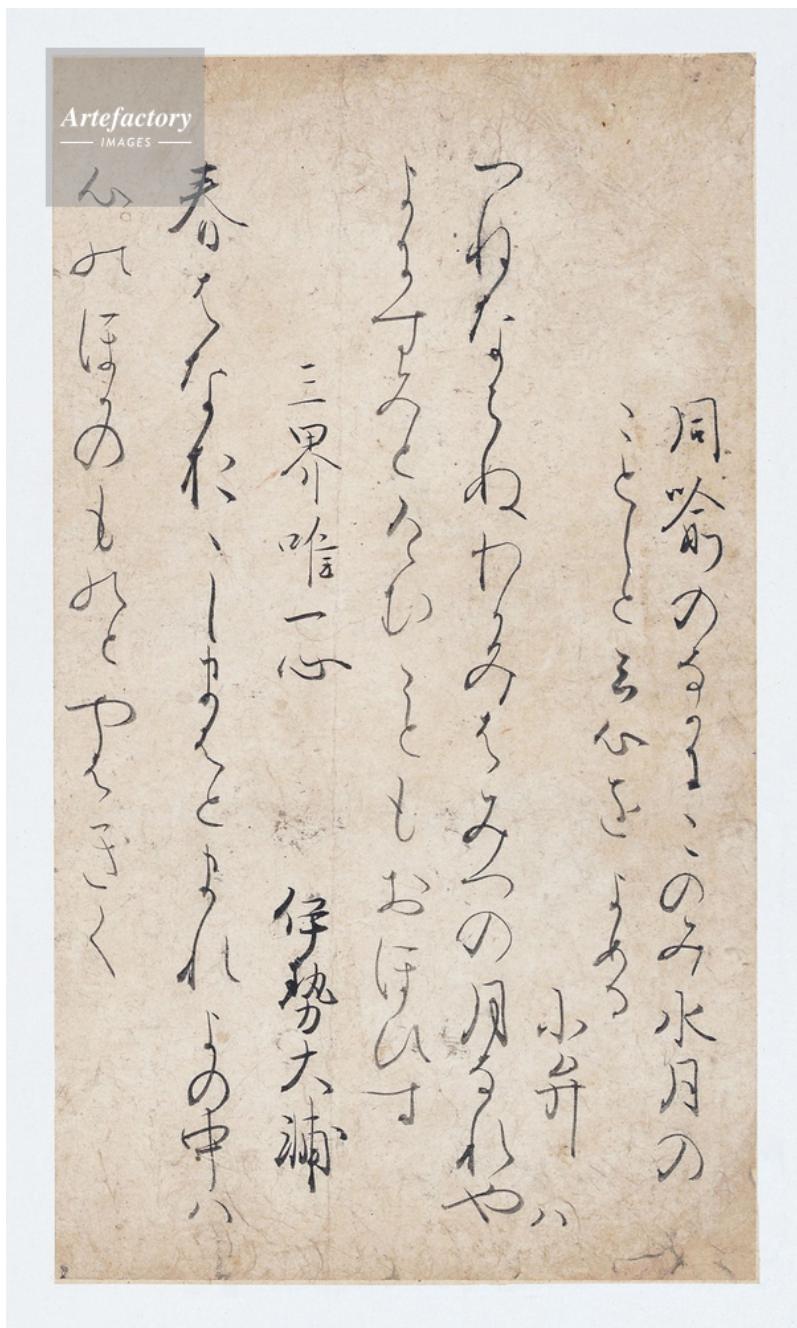 Artefactory
IMAGES
同喩のなかにこのみ水月の
ことしと云心をよめる
小弁
つねならぬわかみはみつの月なれや
ハ
よにすみとけむこともおほひす
三界唯一心
伊勢大輔
春はなおゝしまはとまれよの中ハ
心のほかのものとやはきく